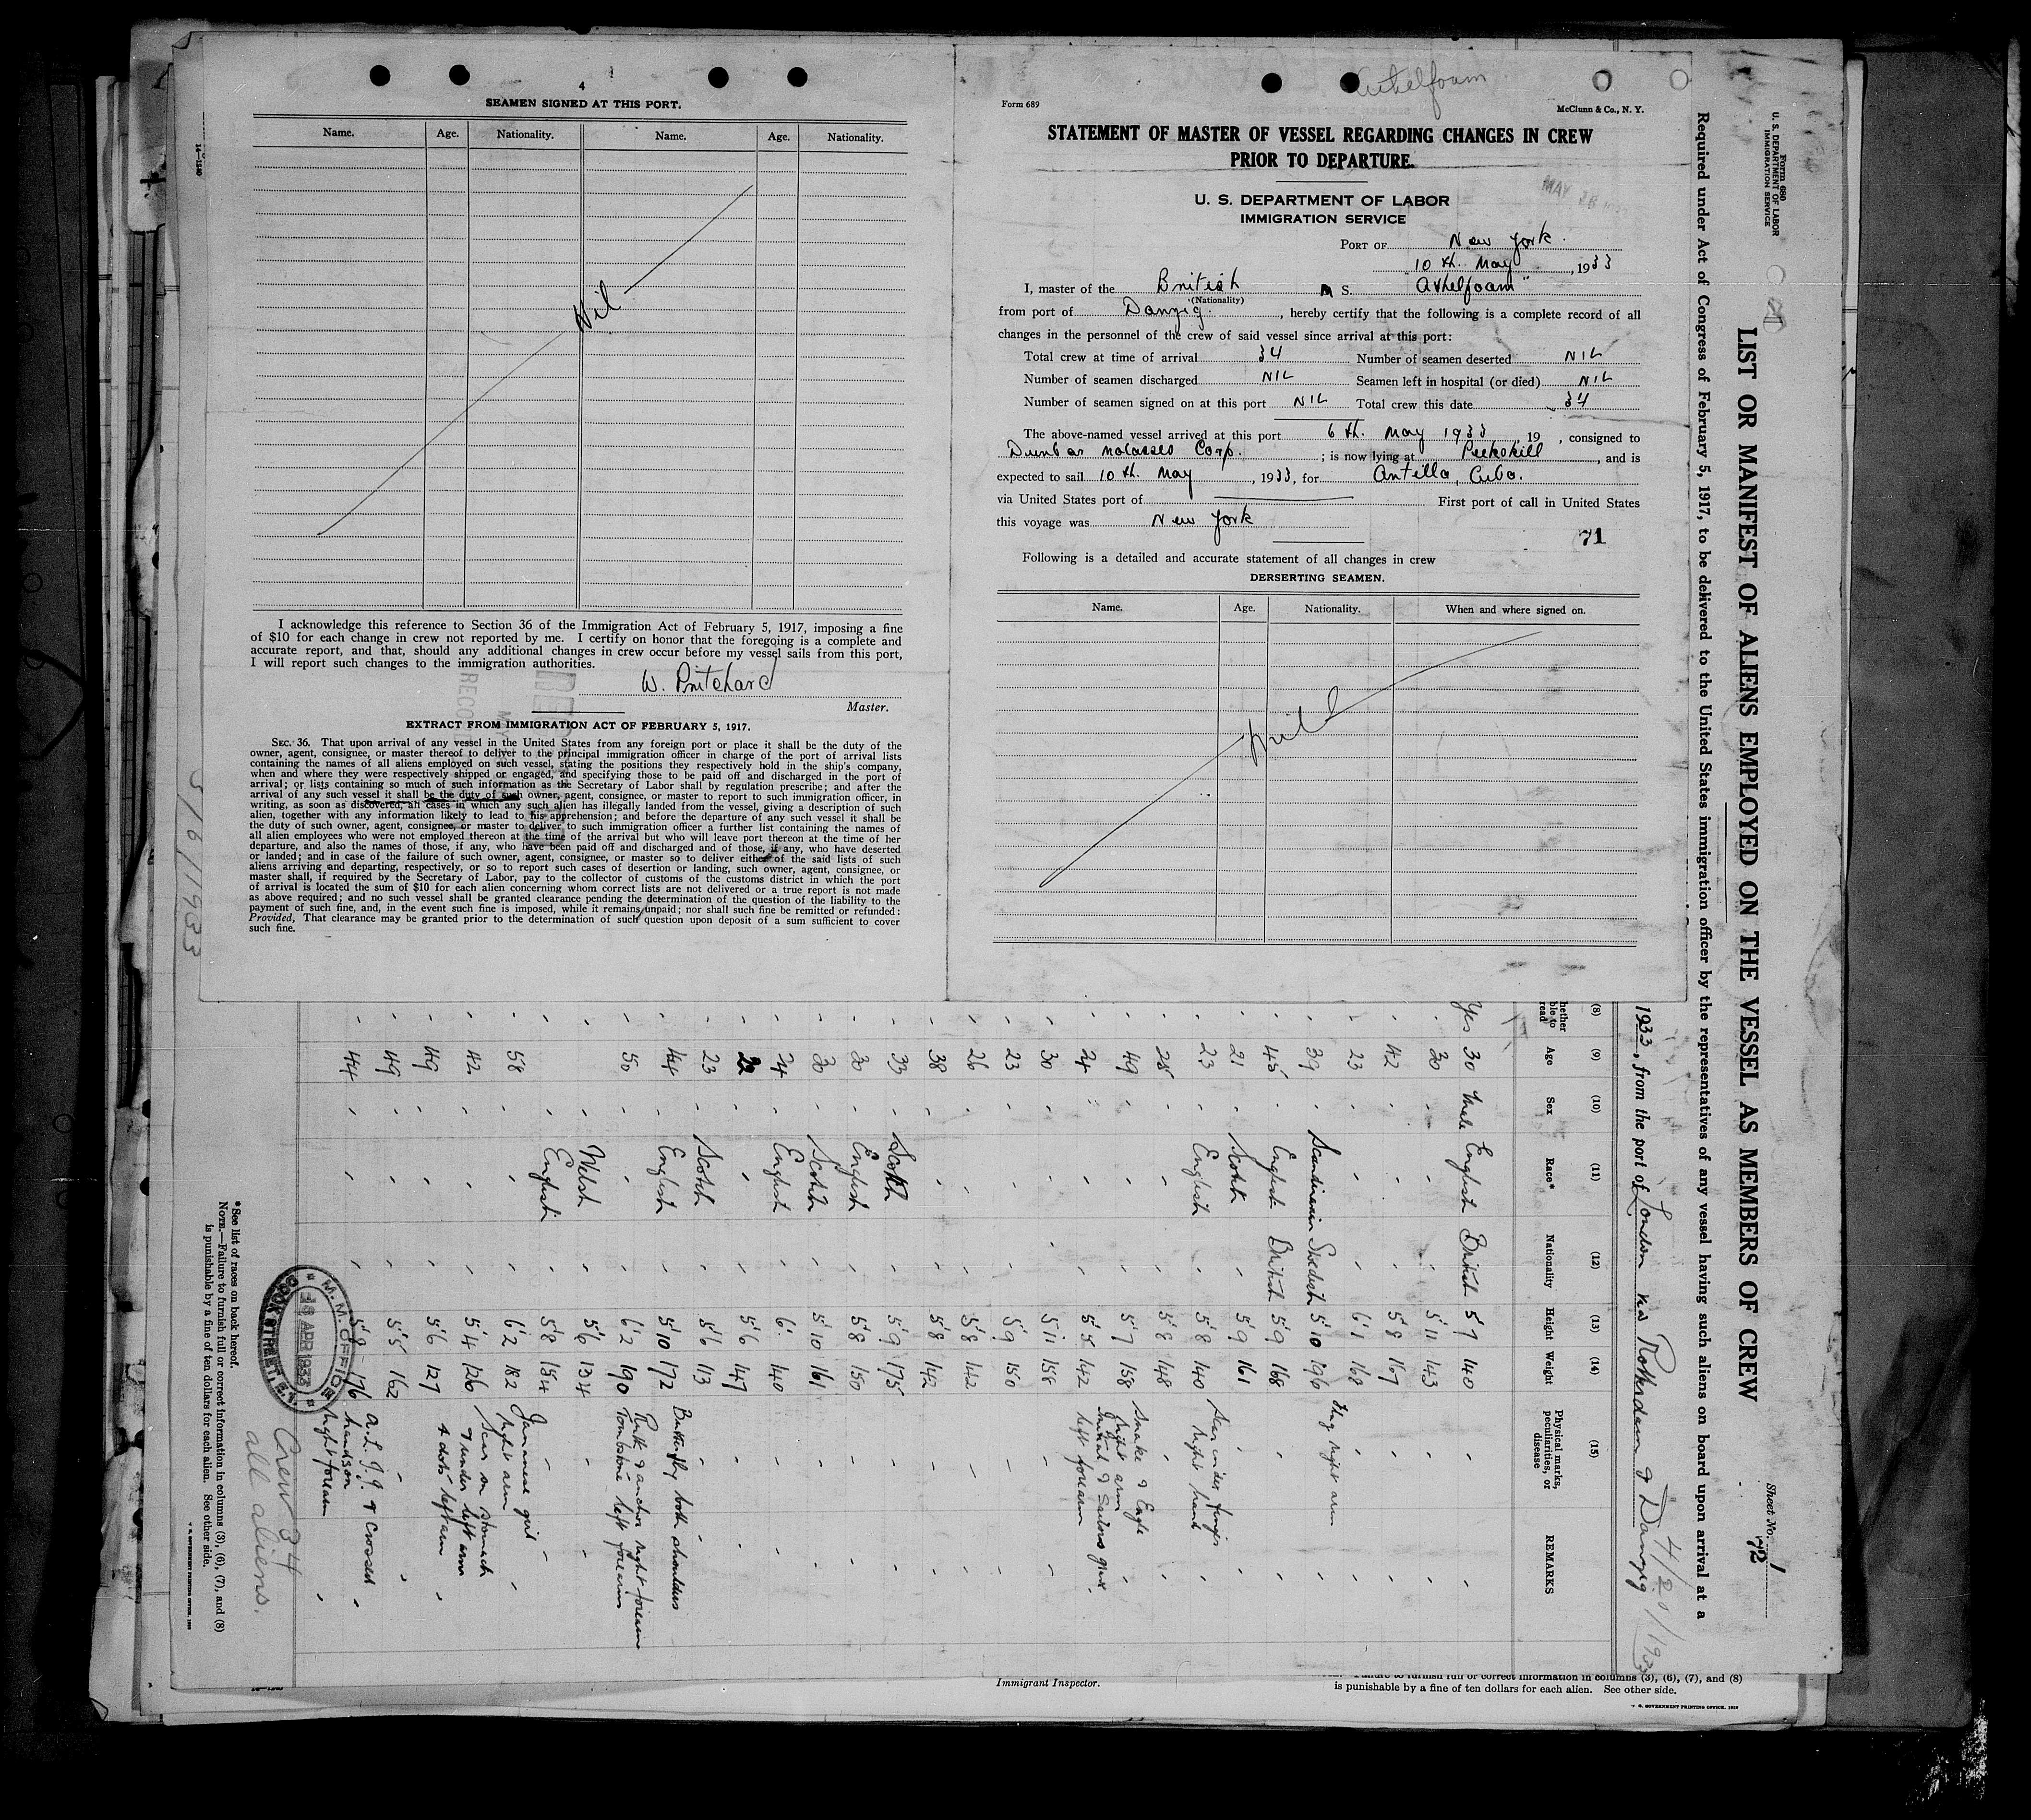 4
SEAMEN SIGNED AT THIS PORT.
Name. Age. Nationality. Name. Age. Nationality.
Nil
I acknowledge this reference to Section 36 of the Immigration Act of February 5, 1917, imposing a fine
of $10 for each change in crew not reported by me. I certify on honor that the foregoing is a complete and
accurate report, and that, should any additional changes in crew occur before my vessel sails from this port,
I will report such changes to the immigration authorities.
W. Pritchard
Master.
EXTRACT FROM IMMIGRATION ACT OF FEBRUARY 5, 1917.
SEC. 36. That upon arrival of any vessel in the United States from any foreign port or place it shall be the duty of the
owner, agent, consignee, or master thereof to deliver to the principal immigration officer in charge of the port of arrival lists
containing the names of all aliens employed on such vessel, stating the positions they respectively hold in the ship's company,
when and where they were respectively shipped or engaged, and specifying those to be paid off and discharged in the port of
arrival; or lists containing so much of such information as the Secretary of Labor shall by regulation prescribe; and after the
arrival of any such vessel it shall be the duty of such owner, agent, consignee, or master to report to such immigration officer, in
writing, as soon as discovered, all cases in which any such alien has illegally landed from the vessel, giving a description of such
alien, together with any information likely to lead to his apprehension; and before the departure of any such vessel it shall be
the duty of such owner, agent, consignee, or master to deliver to such immigration officer a further list containing the names of
all alien employees who were not employed thereon at the time of the arrival but who will leave port thereon at the time of her
departure, and also the names of those, if any, who have been paid off and discharged and of those, if any, who have deserted
or landed; and in case of the failure of such owner, agent, consignee, or master so to deliver either of the said lists of such
aliens arriving and departing, respectively, or so to report such cases of desertion or landing, such owner, agent, consignee, or
master shall, if required by the Secretary of Labor, pay to the collector of customs of the customs district in which the port
of arrival is located the sum of $10 for each alien concerning whom correct lists are not delivered or a true report is not made
as above required; and no such vessel shall be granted clearance pending the determination of the question of the liability to the
payment of such fine, and, in the event such fine is imposed, while it remains unpaid; nor shall such fine be remitted or refunded:
Provided, That clearance may be granted prior to the determination of such question upon deposit of a sum sufficient to cover
such fine.
Athelfoam
Form 689 McClunn & Co., N. Y.
STATEMENT OF MASTER OF VESSEL REGARDING CHANGES IN CREW
PRIOR TO DEPARTURE.
U. S. DEPARTMENT OF LABOR
IMMIGRATION SERVICE
PORT OF New York.
10 th. May, 1933
I, master of the British M S. "Athelfoam"
(Nationality)
from port of Danzig., hereby certify that the following is a complete record of all
changes in the personnel of the crew of said vessel since arrival at this port:
Total crew at time of arrival 34 Number of seamen deserted NIL
Number of seamen discharged NIL Seamen left in hospital (or died) NIL
Number of seamen signed on at this port NIL Total crew this date 34
The above-named vessel arrived at this port 6 th. May 1933, 19 , consigned to
Dunbar Molasses Corp. ; is now lying at Peekskill, and is
expected to sail 10 th. May, 1933, for Antilla, Cuba.
via United States port of First port of call in United States
this voyage was New York
71
Following is a detailed and accurate statement of all changes in crew
DERSERTING SEAMEN.
Name. Age. Nationality. When and where signed on.
Nil
Form 680
U. S. DEPARTMENT OF LABOR
IMMIGRATION SERVICE
LIST OR MANIFEST OF ALIENS EMPLOYED ON THE VESSEL AS MEMBERS OF CREW
Sheet No. 1
72
Required under Act of Congress of February 5, 1917, to be delivered to the United States immigration officer by the representatives of any vessel having such aliens on board upon arrival at a
1933, from the port of London via Rotterdam & Danzig
(8) (9) (10) (11) (12) (13) (14) (15)
hether ble to read Age Sex Race* Nationality Height Weight Physical marks, peculiarities, or disease REMARKS
Yes 30 Male English British 5'7 140
30 5'11 143
42 5'8 167
23 6'1 168
39 Scandinavian Swedish 5'10 196 Flag right arm
45 English British 5'9 168
21 Scotch 5'9 161
23 English 5'8 140 Scar under finger right hand
28 5'8 148
49 5'7 158 Snake & Eagle right arm
24 5'5 142 left forearm
30 5'11 158
23 5'9 150
26 5'8 142
38 5'8 142
33 Scotch 5'9 175
30 English 5'8 150
30 Scotch 5'10 161
24 English 6' 140
22 5'6 147
23 Scotch 5'6 113
44 English 5'10 172 Butterfly both shoulders
50 6'2 190 anchor right forearm Tombstone left forearm
Welsh 5'6 134
English 5'8 154
58 6'2 182 Japanese girl right arm
42 5'4 126 Scar on stomach & under left arm
49 5'6 127 4 dots left arm
49 5'5 162
44 5'8 176 A.L.J.J. & Crossed hands on right forearm
M. M. OFFICE
18 APR 1933
DOCK STREET, E.1
Crew 34
all aliens.
*See list of races on back hereof.
NOTE.—Failure to furnish full or correct information in columns (3), (6), (7), and (8)
is punishable by a fine of ten dollars for each alien. See other side.
5/6/1933
Immigrant Inspector.
is punishable by a fine of ten dollars for each alien. See other side.